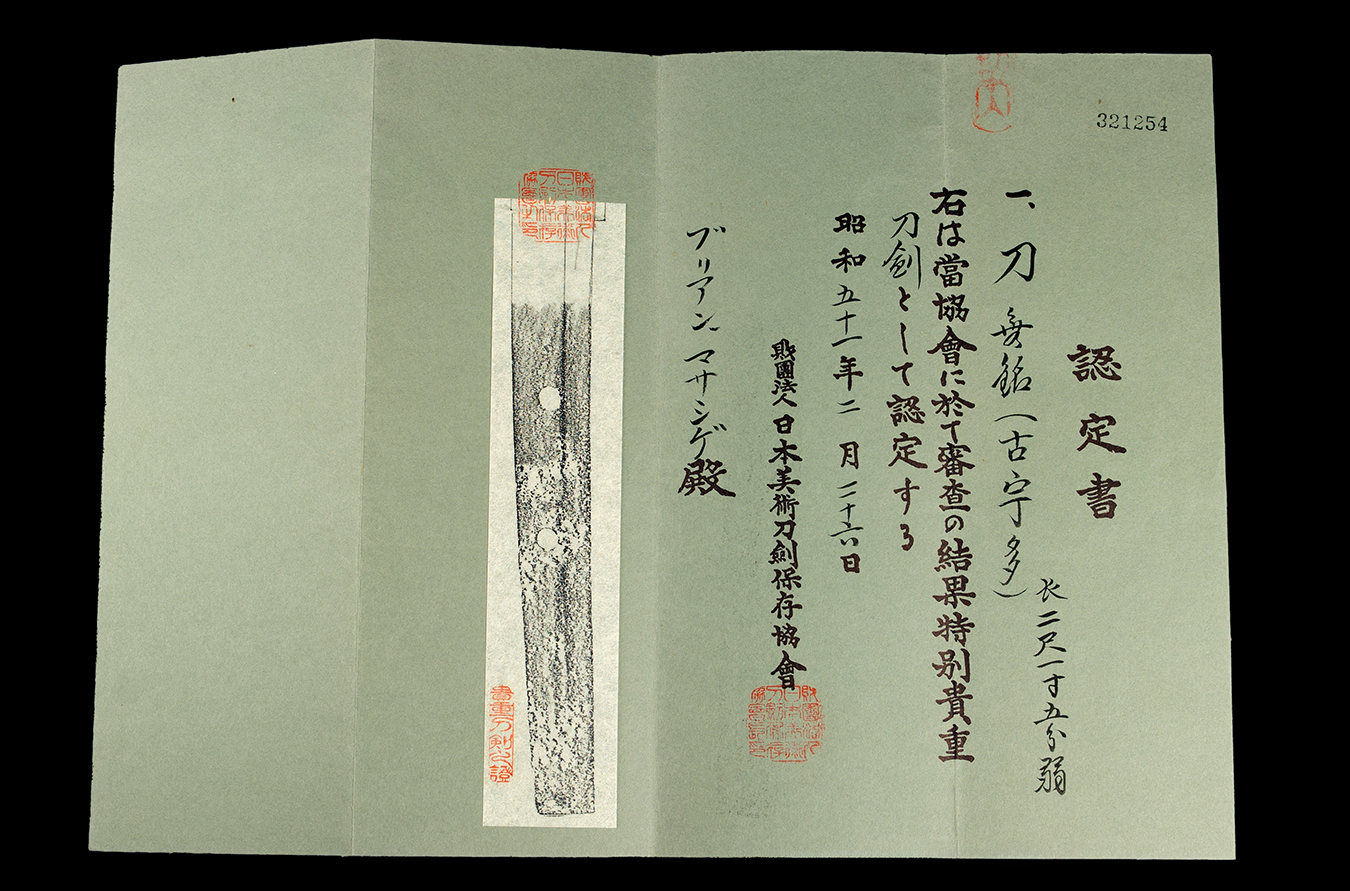 321254
認定書
一、刀 無銘(古宇多)
长二尺一寸五分弱
右は當協會に於て審査の結果特別貴重
刀劍として認定する
昭和五十一年二月二十六日
財團法人日本美術刀劍保存協會
ブリアン、マサシゲ殿
貴重刀剣之證